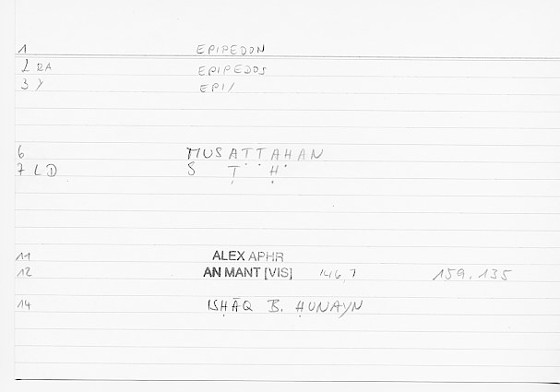 1 EPIPEDON
2 RA EPIPEDOS
3 Y EPI/
6 MUSAṬṬAḤAN
7 LD S Ṭ Ḥ
11 ALEX APHR
12 AN MANT [VIS] 146,7 159.135
14 ISḤĀQ B. ḤUNAYN